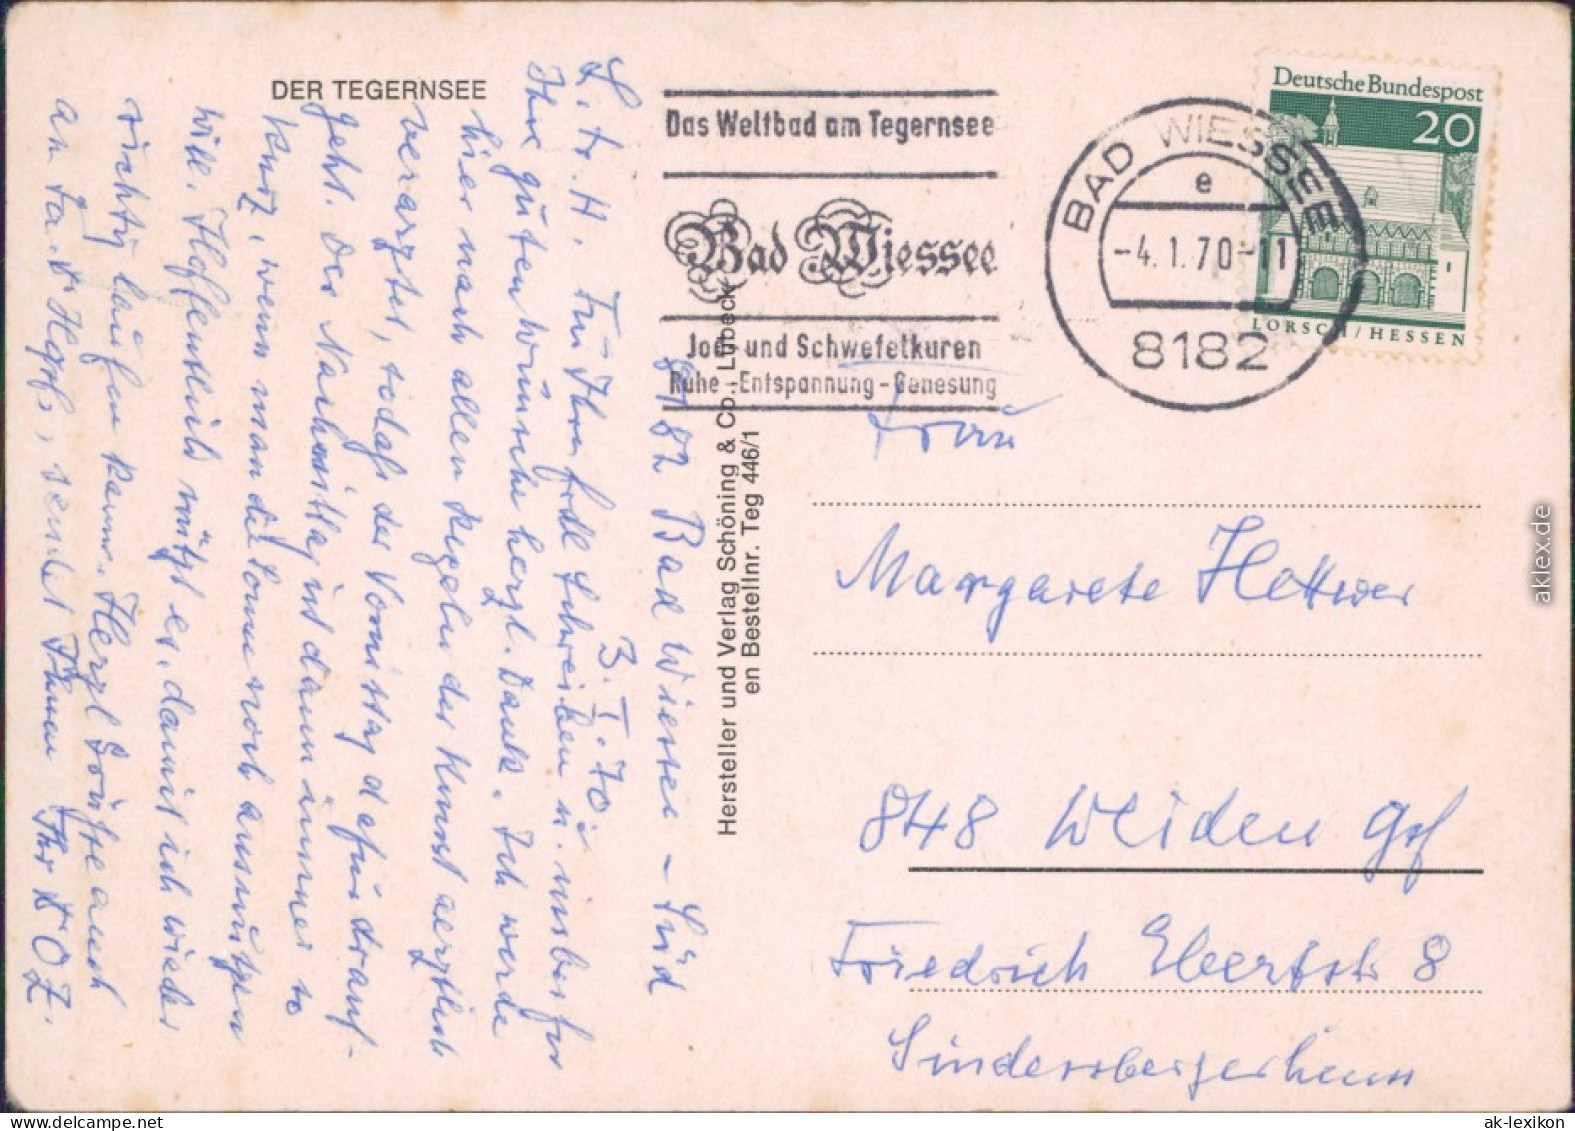 DER TEGERNSEE
8182 Bad Wiessee - Süd
3.I.70.
L. Fr. H. Für Ihr frdl Schreiben u. insbes. für
Ihre guten Wünsche herzl. Dank. Ich werde
hier nach allen Regeln der Kunst aerztlich
verarztet, sodaß der Vormittag dafür drauf-
geht. Der Nachmittag ist dann immer so
kurz, wenn man die Sonne noch ausnützen
will. Hoffentlich nützt es, damit ich wieder
richtig laufen kann. Herzl Grüße auch
an Fa. Hgst, sendet Ihnen Ihr
Hersteller und Verlag Schöning & Co., Lübeck
en Bestellnr. Teg 446/1
Das Weltbad am Tegernsee
Bad Wiessee
Jod- und Schwefelkuren
Ruhe - Entspannung - Genesung
BAD WIESSEE
e
-4.1.70-11
8182
Deutsche Bundespost
20
LORSCH/HESSEN
Frau
Margarete Hottwer
848 Weiden Opf
Friedrich Ebertstr 8
Sindersbergerheim
aklex.de
www.ak-ansichtskarten.de
ak-lexikon